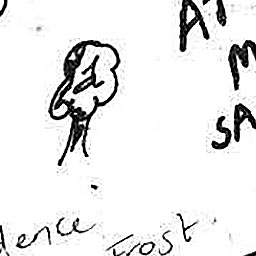 AT
M
SA
dence
Frost